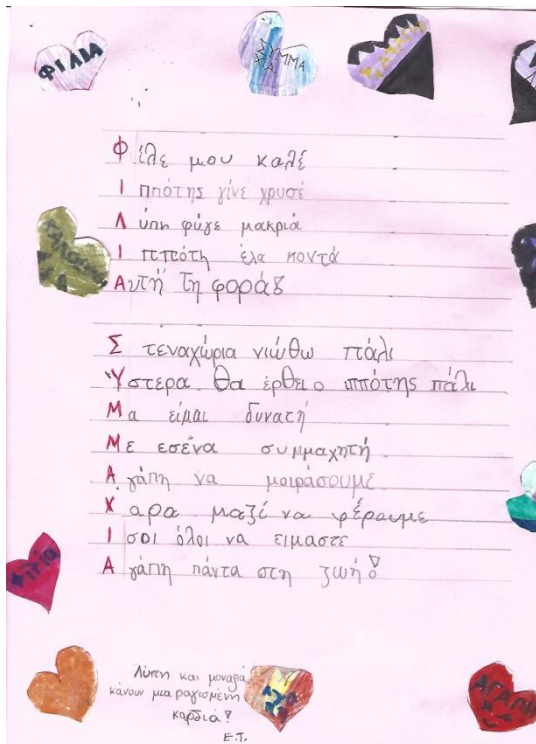 ΦΙΛΙΑ
ΣΥΜΜΑ
ΧΙΑ
Φίλε μου καλέ
Ιππότης γίνε χρυσέ
Λύπη φύγε μακριά
Ιππότη έλα κοντά
Αυτή τη φορά!
Στεναχώρια νιώθω πάλι
Ύστερα θα έρθει ο ιππότης πάλι
Μα είμαι δυνατή
Με εσένα συμμαχητή
Αγάπη να μοιράσουμε
Χαρά μαζί να φέρουμε
Ισοι όλοι να ειμαστε
Αγάπη πάντα στη ζωή!
Φιλία
Λύπη και μοναξιά
κάνουν μια ραγισμένη
καρδιά!
Ε.Τ.
ΑΓΑΠΗ